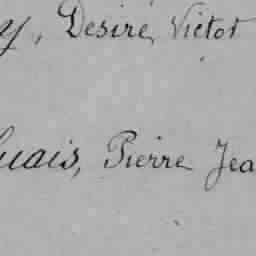 y, Desiré Victor
uais, Pierre Jea